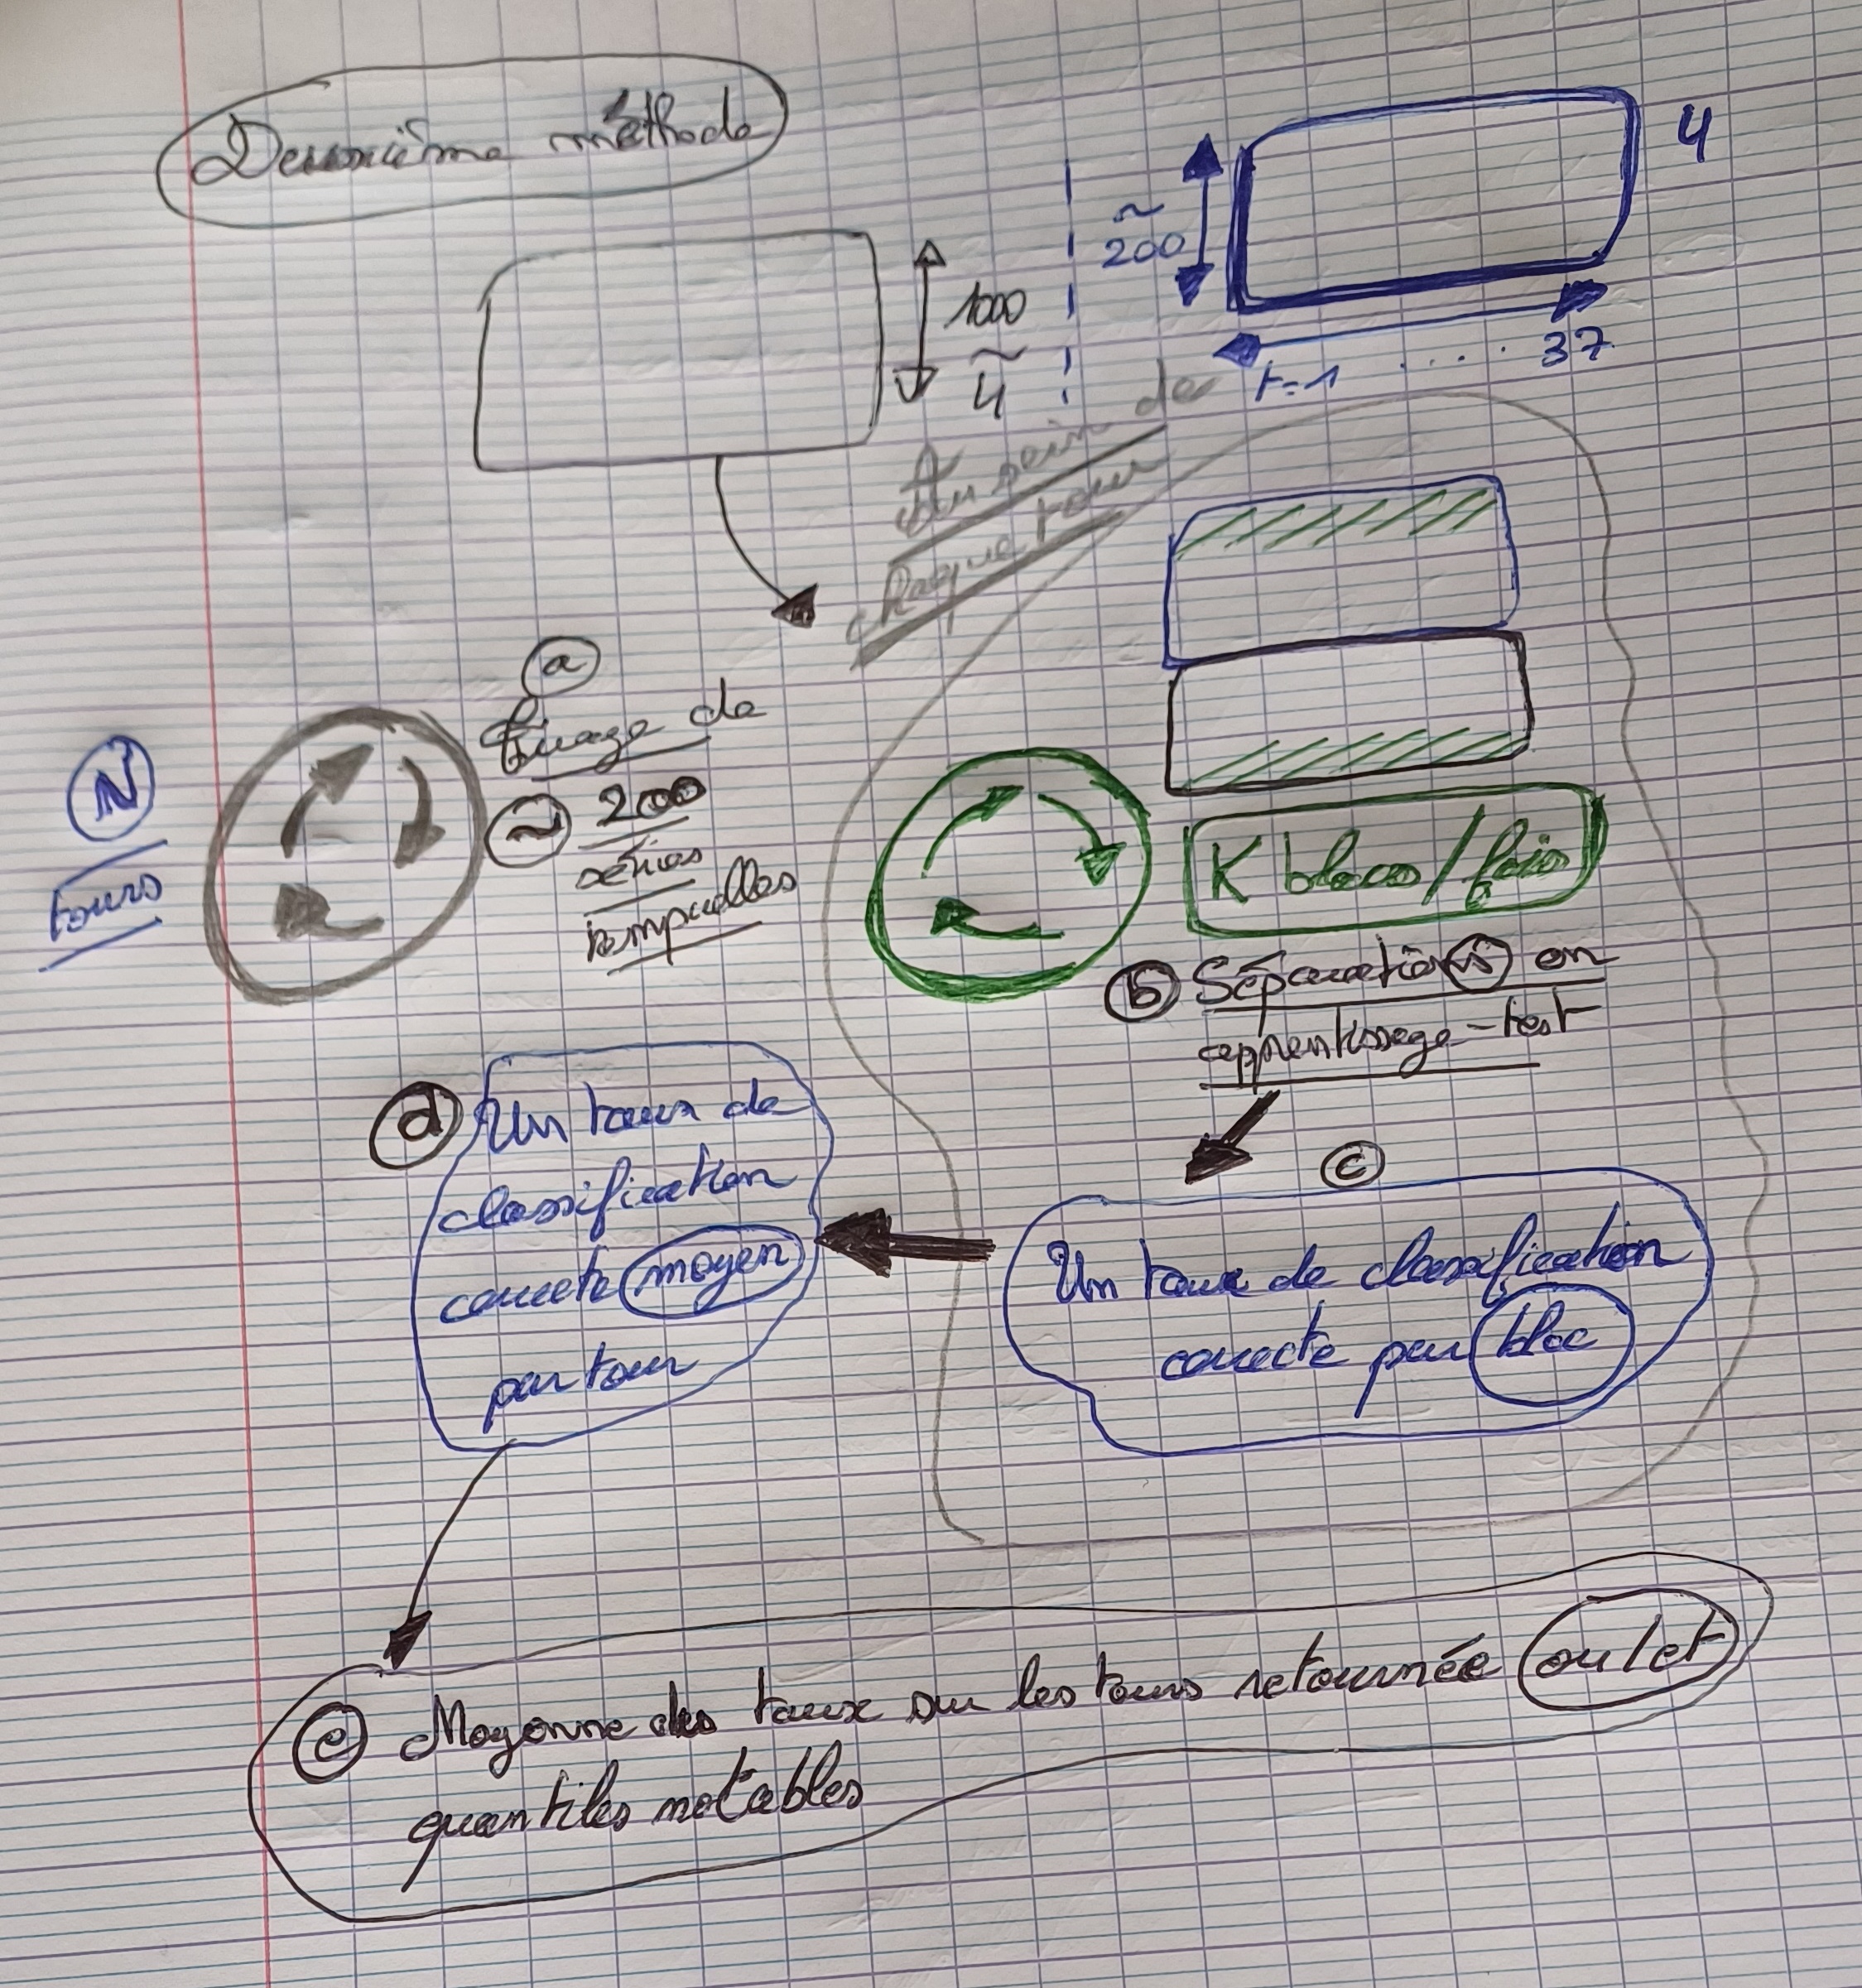 Deuxième méthode
4
~
200
1000
~
4
t=1 .... 37
Au sein de
chaque tour
a
tirage de
~ 200
séries
temporelles
N
tours
K blocs / fois
b Séparation(s) en
apprentissage-test
c
Un taux de classification
correcte par bloc
d Un taux de
classification
correcte moyen
par tour
e Moyenne des taux sur les tours retournée ou/et
quantiles notables